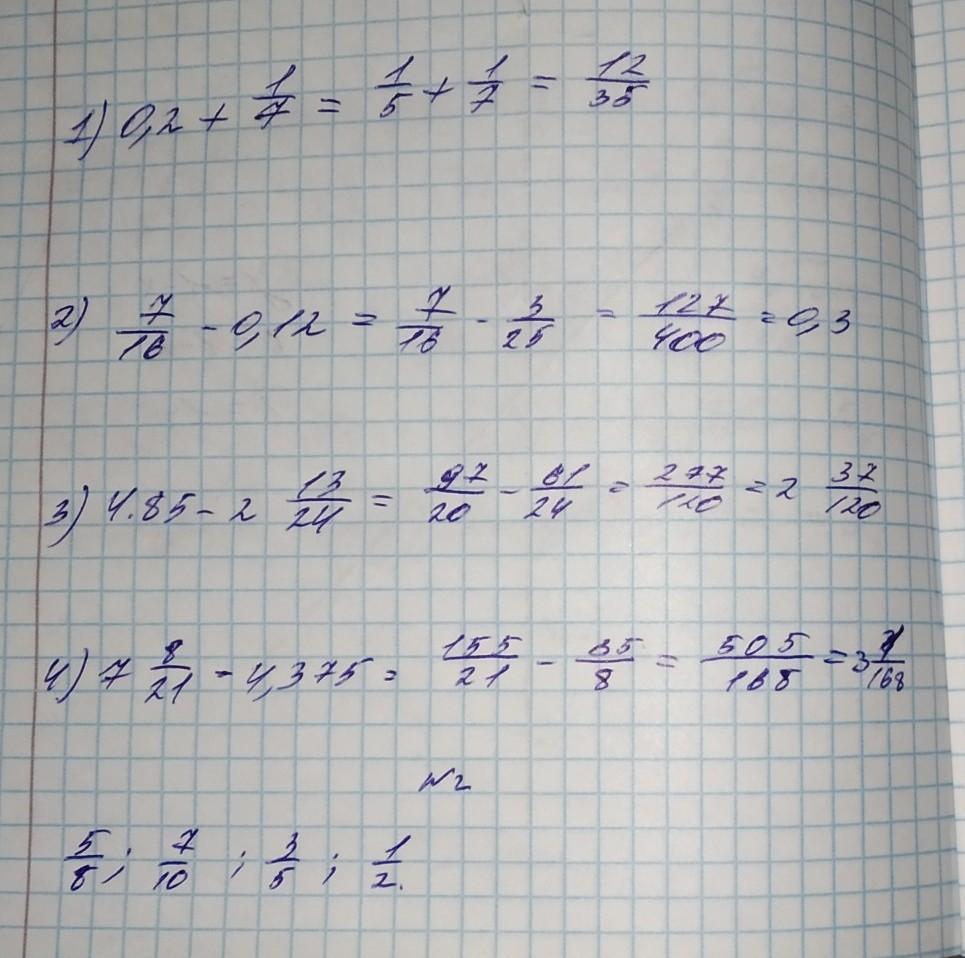 1) 0,2 + 1/7 = 1/5 + 1/7 = 12/35
2) 7/16 - 0,12 = 7/16 - 3/25 = 127/400 = 0,3
3) 4.85 - 2 13/24 = 97/20 - 61/24 = 277/120 = 2 37/120
4) 7 8/21 - 4,375 = 155/21 - 35/8 = 505/168 = 3 1/168
№2
5/8; 7/10; 3/5; 1/2.